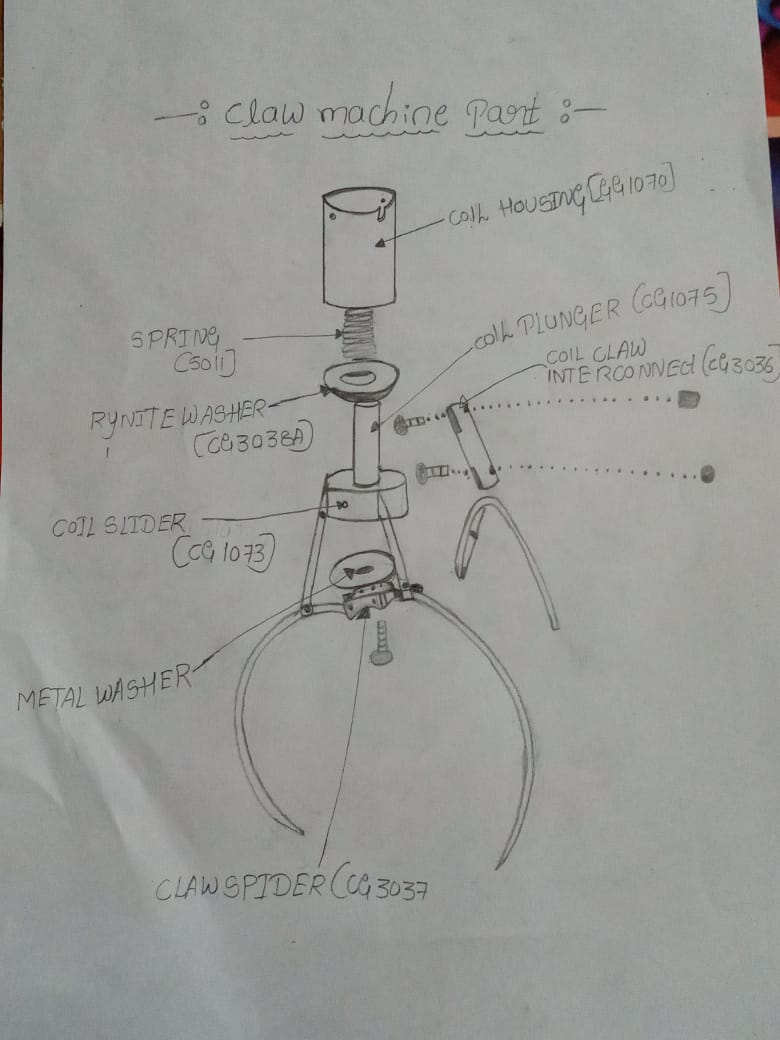 —: Claw machine Part :—
COIL HOUSING [CG1070]
SPRING
[5011]
COIL PLUNGER (CG1075]
COIL CLAW
INTERCONNECT (CG3036]
RYNITE WASHER
[CG3038A)
COIL SLIDER
[CG1073]
METAL WASHER
CLAW SPIDER (CG3037